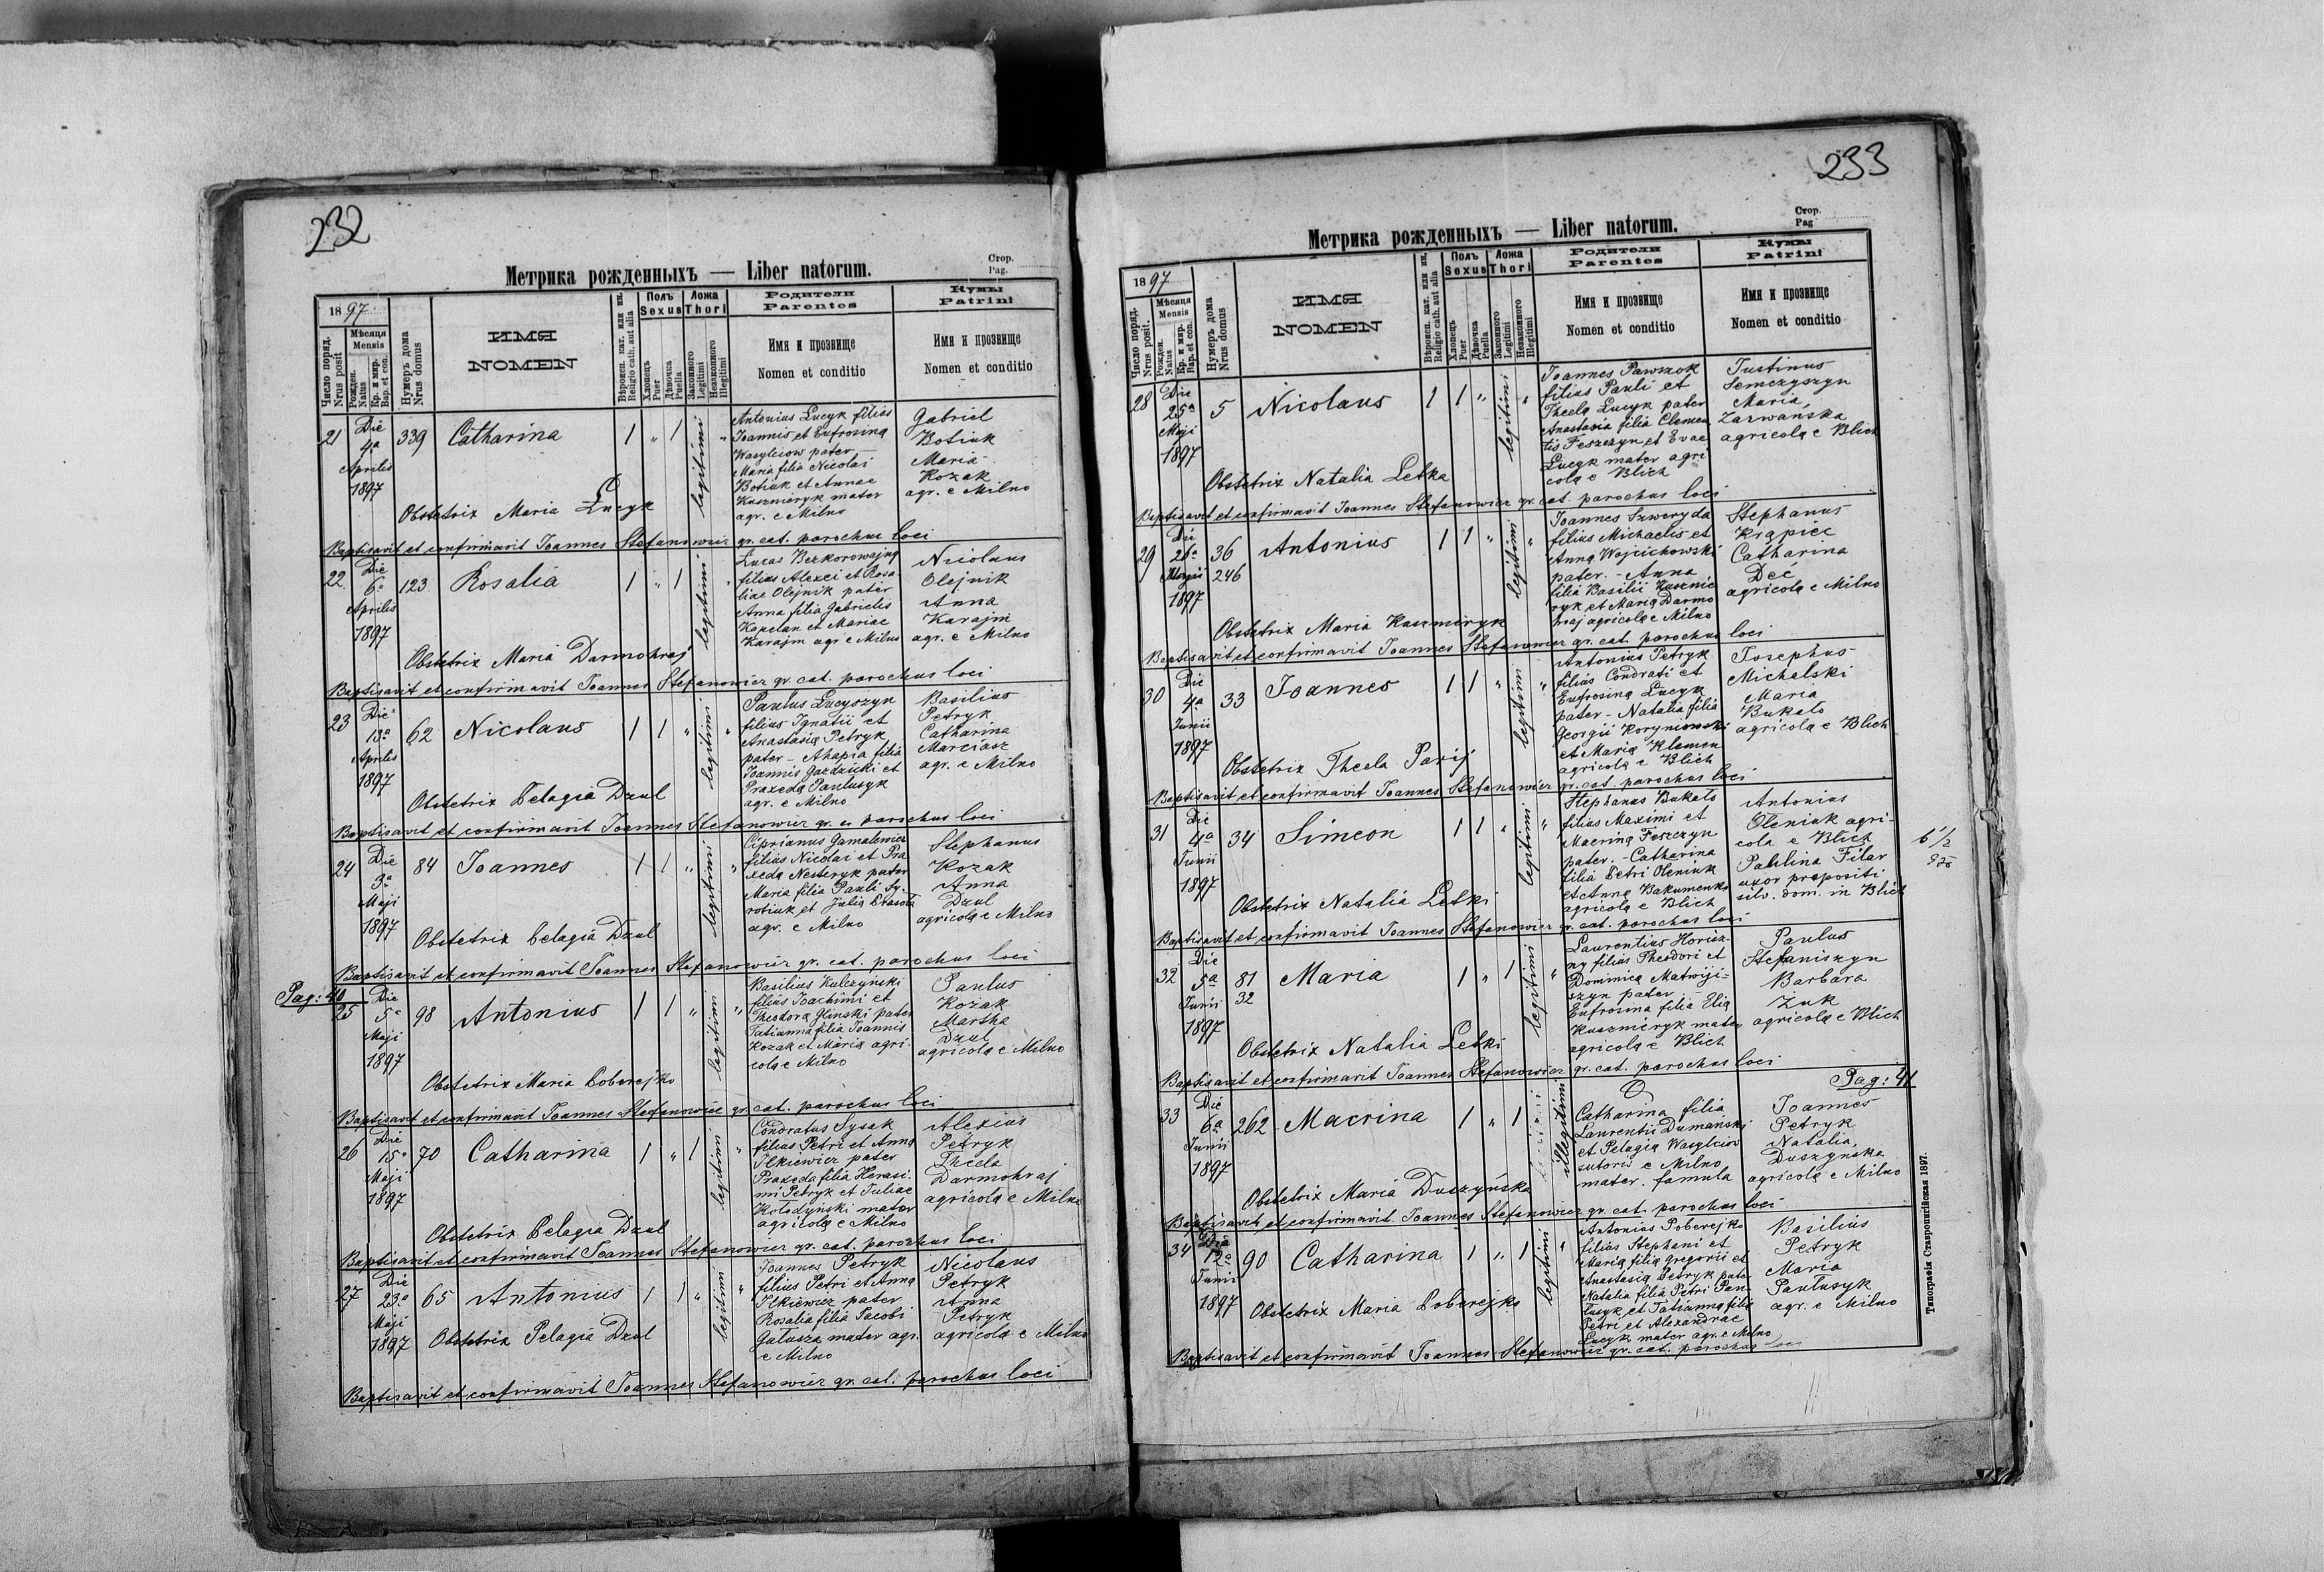 232
Метрика рожденныхъ — Liber natorum.
Стор.
Pag.
1897
Число поряд.
Nrus posit
Мѣсяця
Mensis
Рожден.
Natus
Кр. и мѵр.
Bap. et con.
Нумеръ дома
Nrus domus
ИМЯ
NOMEN
Вѣроисп. кат. или ин.
Religio cath. aut alia
Полъ
Sexus
Хлопець
Puer
Дѣвочка
Puella
Ложа
Thori
Законного
Legitimi
Незаконного
Illegitimi
Родители
Parentes
Имя и прозвище
Nomen et conditio
Кумы
Patrini
Имя и прозвище
Nomen et conditio
21 Die 4a Aprilis 1897 339 Catharina 1 " 1 legitimi "
Antonius Lucyk filius
Ioannis et Eufrosina
Wasylciow pater
Maria filia Nicolai
Botiuk et Annae
Kuszmeryk mater
agr. e Milno
Gabriel
Botiuk
Maria
Kozak
agr. e Milno
Obstetrix Maria Łucyk
Baptisavit et confirmavit Ioannes Stefanowicz gr. cat. parochus loci
22 Die 6a Aprilis 1897 123 Rosalia 1 " 1 legitimi "
Lucas Bezkorowajny
filius Alexei et Rosa-
liae Olejnik pater
Anna filia Gabrielis
Kapelan et Mariae
Karajm agr e Milno
Nicolaus
Olejnik
Anna
Karajm
agr. e Milno
Obstetrix Maria Darmohraj
Baptisavit et confirmavit Ioannes Stefanowicz gr. cat. parochus loci
23 Die 13a Aprilis 1897 62 Nicolaus 1 1 " legitimi "
Paulus Lucyszyn
filius Ignatii et
Anastasia Petryk
pater - Ahapia filia
Ioannis Gazdzicki et
Praxeda Pantusyk
agr. e Milno
Basilius
Petryk
Catharina
Marciasz
agr. e Milno
Obstetrix Pelagia Dzul
Baptisavit et confirmavit Ioannes Stefanowicz gr. c. parochus loci
24 Die 3a Maji 1897 84 Ioannes 1 1 " legitimi "
Ciprianus Gamalewicz
filius Nicolai et Pra-
xeda Nesteryk pater
Maria filia Pauli Sy-
rotiuk et Julia
agr. e Milno
Stephanus
Kozak
Anna
Dzul
agricola e Milno
Obstetrix Pelagia Dzul
Baptisavit et confirmavit Ioannes Stefanowicz gr. cat. parochus loci
Pag: 40
25 Die 5a Maji 1897 98 Antonius 1 1 " legitimi "
Basilius Kulczynski
filius Ioachimi et
Theodora Glinski pater
Tatianna filia Ioannis
Kozak et Maria agri-
cola e Milno
Paulus
Kozak
Martha
Dzul
agricola e Milno
Obstetrix Maria Poberejko
Baptisavit et confirmavit Ioannes Stefanowicz gr. cat. parochus loci
26 Die 15a Maji 1897 70 Catharina 1 " 1 legitimi "
Condratus Sysak
filius Petri et Anna
Ilkiewicz pater
Praxeda filia Herasi-
mi Petryk et Juliae
Kolodynski mater
agricola e Milno
Alexius
Petryk
Thecla
Darmohraj
agricola e Milno
Obstetrix Pelagia Dzul
Baptisavit et confirmavit Ioannes Stefanowicz gr. cat. parochus loci
27 Die 23a Maji 1897 65 Antonius 1 1 " legitimi "
Ioannes Petryk
filius Petri et Anna
Ilkiewicz pater
Rosalia filia Jacobi
Gałusza mater agr.
e Milno
Nicolaus
Petryk
Anna
Petryk
agricola e Milno
Obstetrix Pelagia Dzul
Baptisavit et confirmavit Ioannes Stefanowicz gr. cat. parochus loci
233
Метрика рожденныхъ — Liber natorum.
Стор.
Pag
1897
Число поряд.
Nrus posit.
Мѣсяця
Mensis
Рожден.
Natus
Кр. и мѵр.
Bap. et con.
Нумеръ дома
Nrus domus
ИМЯ
NOMEN
Вѣроисп. кат. или ин.
Religio cath. aut alia
Полъ
Sexus
Хлопець
Puer
Дѣвочка
Puella
Ложа
Thori
Законного
Legitimi
Незаконного
Illegitimi
Родители
Parentes
Имя и прозвище
Nomen et conditio
Кумы
Patrini
Имя и прозвище
Nomen et conditio
28 Die 25a Maji 1897 5 Nicolaus 1 1 " legitimi "
Ioannes Pawszok
filius Pauli et
Thecla Lucyk pater
Anastasia filia Clemen
tis Feszczyn et Evae
Lucyk mater agri
cola e Blich
Iustinus
Semczyszyn
Maria
Zarwańska
agricola e Blich
Obstetrix Natalia Letka
Baptisavit et confirmavit Ioannes Stefanowicz gr. cat. parochus loci
29 Die Maji 1897 36 246 Antonius 1 1 " legitimi "
Ioannes Szweryda
filius Michaelis et
Anna Wojcichowski
pater. - Anna
filia Basilii Kuszme
ryk et Maria Darmo
hraj agricola e Milno
Stephanus
Krąpiec
Catharina
Deć
agricola e Milno
Obstetrix Maria Kuszmeryk
Baptisavit et confirmavit Ioannes Stefanowicz gr. cat. parochus loci
30 Die 4a Junii 1897 33 Ioannes 1 1 " legitimi "
Antonius Petryk
filius Condrati et
Eufrosina Lucyk
pater - Natalia filia
Georgii Koryniowski
et Maria Klemen
agricola e Blich
Iosephus
Michalski
Maria
Bukało
agricola e Blich
Obstetrix Thecla Paryj
Baptisavit et confirmavit Ioannes Stefanowicz gr. cat. parochus loci
31 Die 4a Junii 1897 34 Simeon 1 1 " legitimi "
Stephanus Bukało
filius Maximi et
Macrina Feszczyn
pater. - Catharina
filia Petri Oleniuk
et Anna Bakumenko
agricola e Blich
Antonius
Oleniuk agri-
cola e Blich
Paulina Filar
uxor propositi
silv. dom. in Blich
6 1/2
Obstetrix Natalia Letki
Baptisavit et confirmavit Ioannes Stefanowicz gr. cat. parochus loci
32 Die 5a Junii 1897 81 32 Maria 1 " 1 legitimi "
Laurentius Horisz-
ny filius Theodori et
Dominica Matwiji-
szyn pater -
Eufrosina filia Elia
Kuszmeryk mater
agricola e Blich
Paulus
Stefaniszyn
Barbara
Żuk
agricola e Blich
Obstetrix Natalia Letki
Baptisavit et confirmavit Ioannes Stefanowicz gr. cat. parochus loci
Pag: 41
33 Die 6a Junii 1897 262 Macrina 1 " 1 illegitimi
Catharina filia
Laurentii Dumański
et Pelagia Wasylciow
sutoris e Milno
mater. famula
Ioannes
Petryk
Natalia
Duszyńska
agricola e Milno
Obstetrix Maria Duszyńska
Baptisavit et confirmavit Ioannes Stefanowicz gr. cat. parochus loci
34 Junii 1897 90 Catharina 1 " 1 legitimi "
Antonius Poberejko
filius Stephani et
Maria filia Gregorii et
Anastasia Petryk pater
Natalia filia Petri Pan-
tusyk et Tatianna filia
Petri et Alexandrae
Lucyk mater agr. e Milno
Basilius
Petryk
Maria
Pantusyk
agr. e Milno
Obstetrix Maria Poberejko
Baptisavit et confirmavit Ioannes Stefanowicz gr. cat. parochus loci
Типографія Ставропигійская 1897.